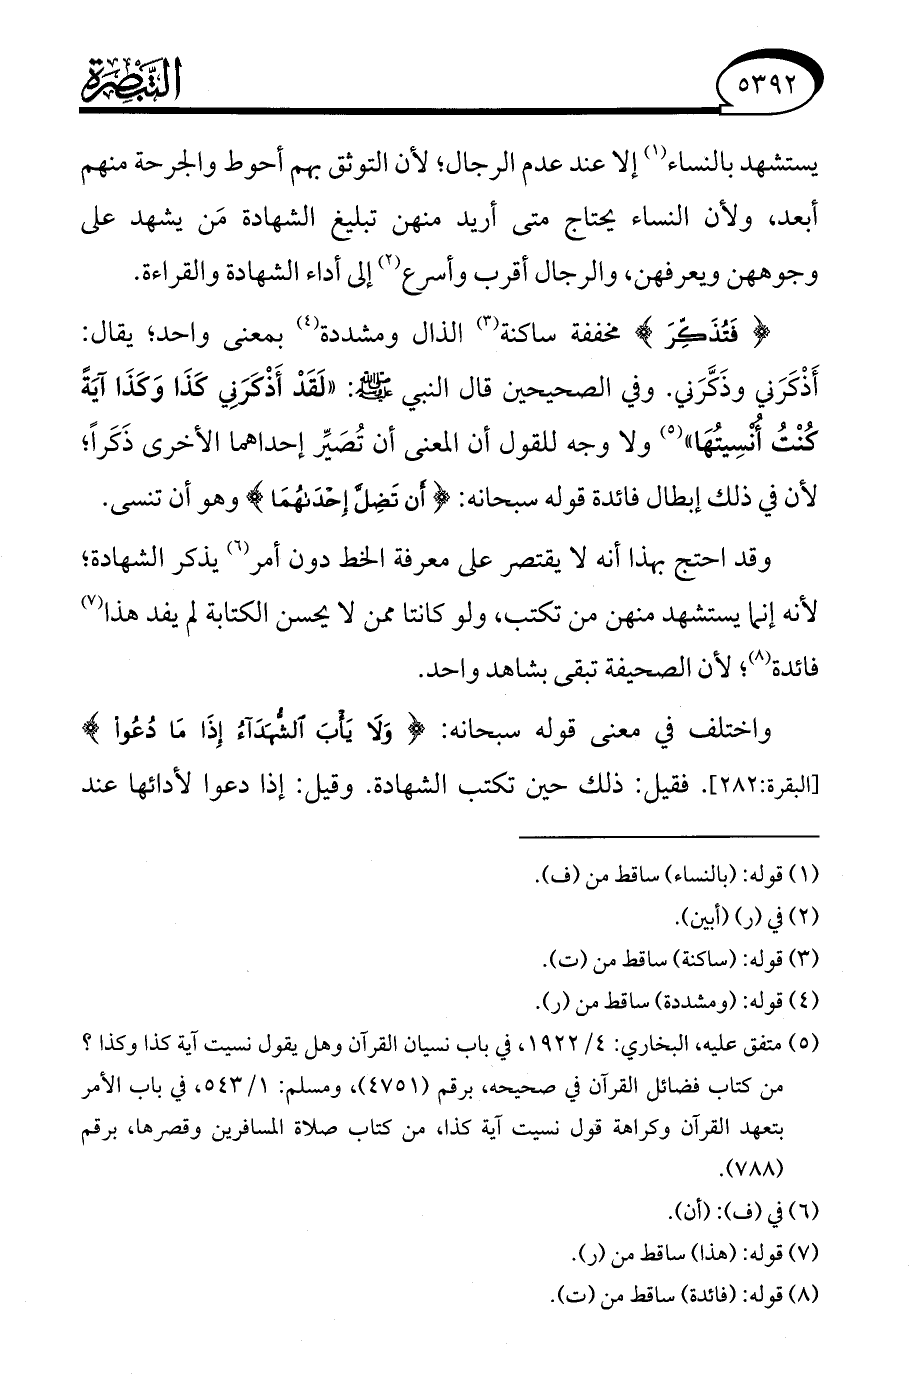 ٥٣٩٢ التبصرة
يستشهد بالنساء(١) إلا عند عدم الرجال؛ لأن التوثق بهم أحوط والجرحة منهم
أبعد، ولأن النساء يحتاج متى أريد منهن تبليغ الشهادة مَن يشهد على
وجوههن ويعرفهن، والرجال أقرب وأسرع(٢) إلى أداء الشهادة والقراءة.
﴿ فَتُذَكِّرَ ﴾ مخففة ساكنة(٣) الذال ومشددة(٤) بمعنى واحد؛ يقال:
أَذْكَرَني وذَكَّرَني. وفي الصحيحين قال النبي ﷺ: «لَقَدْ أَذْكَرَنِي كَذَا وَكَذَا آيَةً
كُنْتُ أُنْسِيتُهَا»(٥) ولا وجه للقول أن المعنى أن تُصَيِّر إحداهما الأخرى ذَكَراً؛
لأن في ذلك إبطال فائدة قوله سبحانه: ﴿ أَن تَضِلَّ إِحْدَىٰهُمَا ﴾ وهو أن تنسى.
وقد احتج بهذا أنه لا يقتصر على معرفة الخط دون أمر(٦) يذكر الشهادة؛
لأنه إنما يستشهد منهن من تكتب، ولو كانتا ممن لا يحسن الكتابة لم يفد هذا(٧)
فائدة(٨)؛ لأن الصحيفة تبقى بشاهد واحد.
واختلف في معنى قوله سبحانه: ﴿ وَلَا يَأْبَ ٱلشُّهَدَآءُ إِذَا مَا دُعُوا۟ ﴾
[البقرة:٢٨٢]. فقيل: ذلك حين تكتب الشهادة. وقيل: إذا دعوا لأدائها عند
(١) قوله: (بالنساء) ساقط من (ف).
(٢) في (ر) (أبين).
(٣) قوله: (ساكنة) ساقط من (ت).
(٤) قوله: (ومشددة) ساقط من (ر).
(٥) متفق عليه، البخاري: ٤/ ١٩٢٢، في باب نسيان القرآن وهل يقول نسيت آية كذا وكذا ؟
من كتاب فضائل القرآن في صحيحه، برقم (٤٧٥١)، ومسلم: ١/ ٥٤٣، في باب الأمر
بتعهد القرآن وكراهة قول نسيت آية كذا، من كتاب صلاة المسافرين وقصرها، برقم
(٧٨٨).
(٦) في (ف): (أن).
(٧) قوله: (هذا) ساقط من (ر).
(٨) قوله: (فائدة) ساقط من (ت).